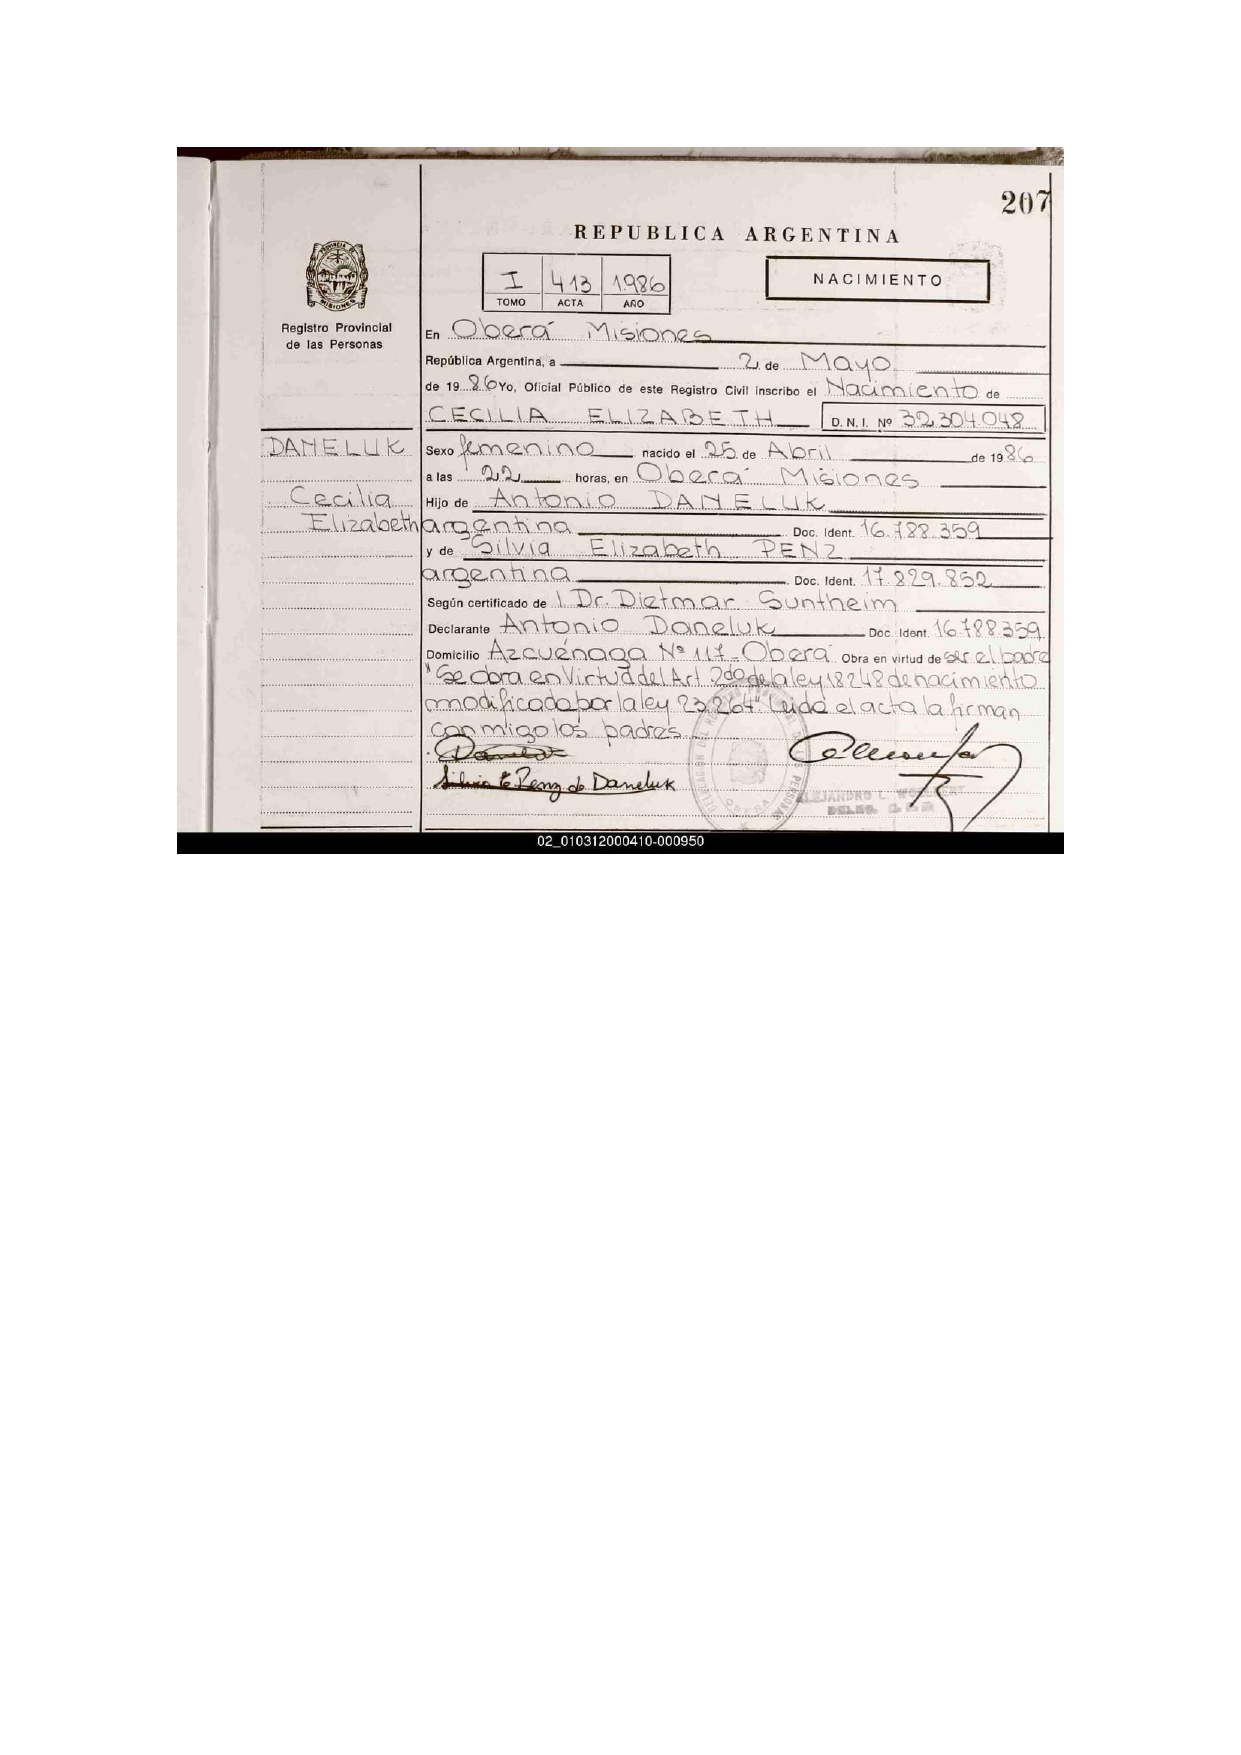 207
REPUBLICA ARGENTINA
I 413 1986
TOMO ACTA AÑO
NACIMIENTO
PROVINCIA DE
MISIONES
Registro Provincial
de las Personas
En Oberá Misiones
República Argentina, a 2 de Mayo
de 19 86 Yo, Oficial Público de este Registro Civil inscribo el Nacimiento de
CECILIA ELIZABETH D. N. I. Nº 32.304.048
DANELUK
Cecilia
Elizabeth
Sexo femenino nacido el 25 de Abril de 19 86
a las 22 horas, en Oberá Misiones
Hijo de Antonio DANELUK
argentina Doc. Ident. 16.788.359
y de Silvia Elizabeth PENZ
argentina Doc. Ident. 17.829.852
Según certificado de Dr. Dietmar Suntheim
Declarante Antonio Daneluk Doc. Ident. 16.788.359
Domicilio Azcuénaga Nº 117 - Oberá Obra en virtud de ser el padre
"Se obra en Virtud del Art. 2do de la ley 18248 de nacimiento
modificado por la ley 23.264" Leida el acta la firman
conmigo los padres
Silvia E Penz de Daneluk
DELEGACION DEL REGISTRO PROVINCIAL DE LAS PERSONAS
OBERA
ALEJANDRO L.
02_010312000410-000950